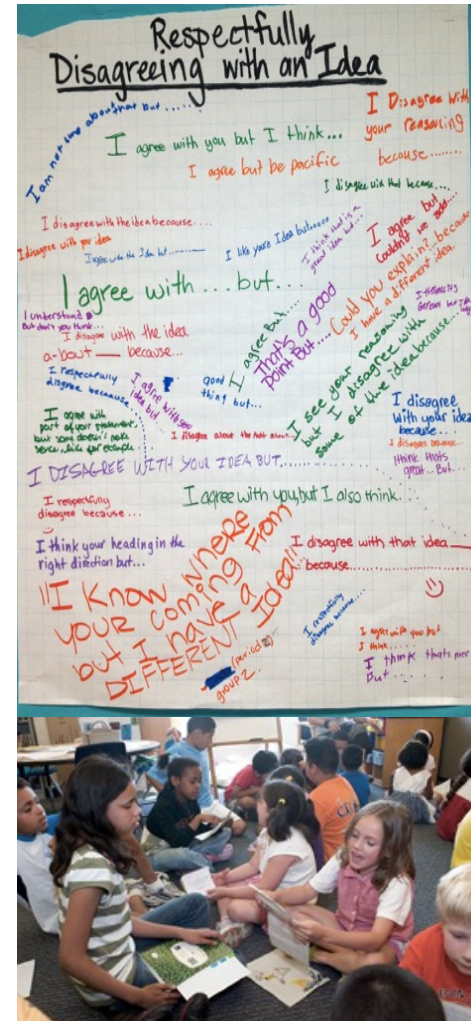 Respectfully
Disagreeing with an Idea
I am not sure about that but ......
I Disagree with
your reasoning
because........
I agree with you but I think...
I agree but be pacific
I disagree with that because....
I disagree with the idea because....
I disagree with your idea
I agree with the Idea but
I like you're Idea but
I think that is a
great idea but...
I agree but
Could you explain?..because
I have a different idea.
I agree with ... but...
I understand
But don't you think...
I disagree with the idea
a-bout ___ because...
I agree But....
That's a good
point But....
I respectfully
disagree because...
I agree with you
idea but
good
thing but...
I see your reasoning
but I disagree with
some of the idea because...
I disagree
with your idea
because...
I disagree because...
I think thats
great... But...
I agree with
part of your statement,
but some doesn't make
sense. like for example
I disagree about the
I DISAGREE WITH YOUR IDEA BUT..............
I respectfully
disagree because...
I agree with you, but I also think...
I think your heading in the
right direction but...
I disagree with that idea
because......................
"I KNOW WHERE
YOUR COMING FROM
but I HAVE A
DIFFERENT IDEA!"
(period 2)
group 2.
I respectfully
disagree because...
I agree with you but
I think......
I think thats
but......